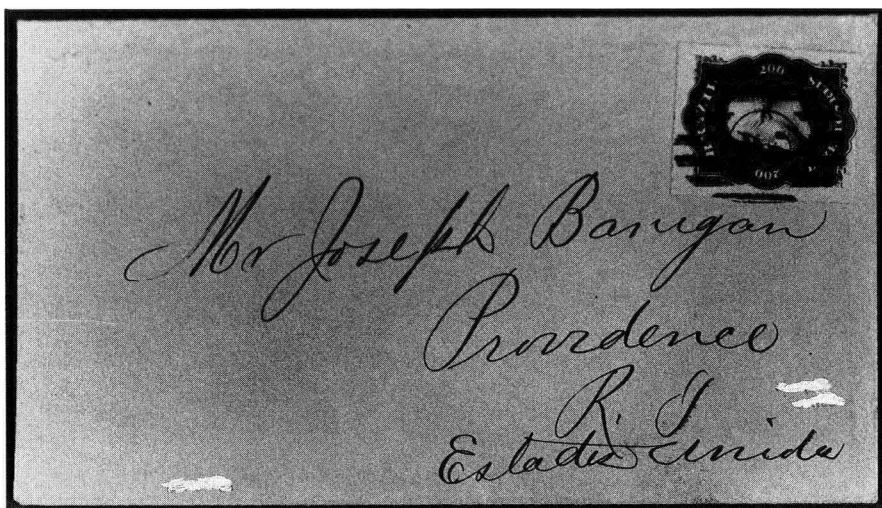 BRAZIL 200
200
Mr Joseph Banigan
Providence
R. I
Estados Unida